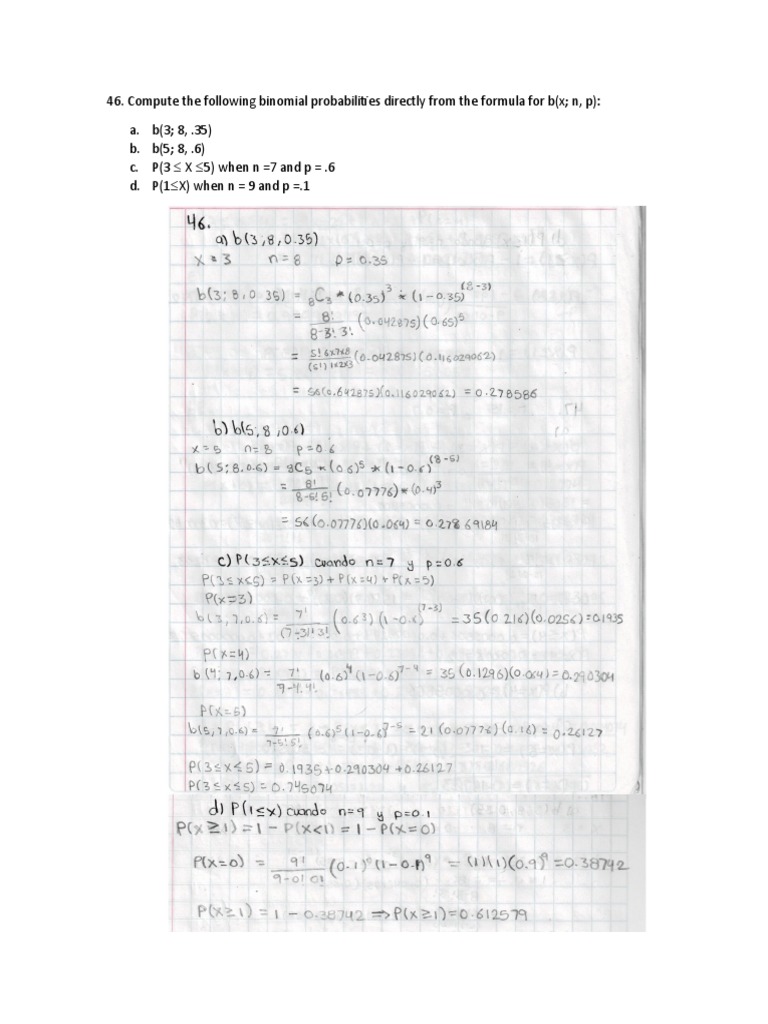 46. Compute the following binomial probabilities directly from the formula for b(x; n, p):
a. b(3; 8, .35)
b. b(5; 8, .6)
c. P(3 ≤ X ≤5) when n =7 and p = .6
d. P(1≤X) when n = 9 and p =.1
46.
a) b(3,8,0.35)
x = 3 n = 8 p = 0.35
b(3; 8, 0.35) = 8C3 * (0.35)^3 * (1-0.35)^(8-3)
= 8! / 8-3! 3! (0.042875)(0.65)^5
= 5! 6x7x8 / (5!) 1x2x3 (0.042875)(0.116029062)
= 56(0.642875)(0.116029062) = 0.278586
b) b(5, 8, 0.6)
x = 5 n = 8 p = 0.6
b(5; 8, 0.6) = 8C5 * (0.6)^5 * (1-0.6)^(8-5)
= 8! / 8-5! 5! (0.07776) * (0.4)^3
= 56(0.07776)(0.064) = 0.27869184
c) P(3≤x≤5) cuando n=7 y p=0.6
P(3≤x≤5) = P(x=3) + P(x=4) + P(x=5)
P(x=3)
b(3, 7, 0.6) = 7! / (7-3)! 3! (0.6^3)(1-0.6)^(7-3) = 35(0.216)(0.0256) = 0.1935
P(x=4)
b(4; 7, 0.6) = 7! / 7-4! 4! (0.6)^4 (1-0.6)^7-4 = 35(0.1296)(0.064) = 0.290304
P(x=5)
b(5, 7, 0.6) = 7! / 7-5! 5! (0.6)^5 (1-0.6)^7-5 = 21(0.07776)(0.16) = 0.26127
P(3≤x≤5) = 0.1935 + 0.290304 + 0.26127
P(3≤x≤5) = 0.745074
d) P(1≤x) cuando n=9 y p=0.1
P(x≥1) = 1 - P(x<1) = 1 - P(x=0)
P(x=0) = 9! / 9-0! 0! (0.1)^0 (1-0.1)^9 = (1)(1)(0.9)^9 = 0.38742
P(x≥1) = 1 - 0.38742 ⇒ P(x≥1) = 0.612579